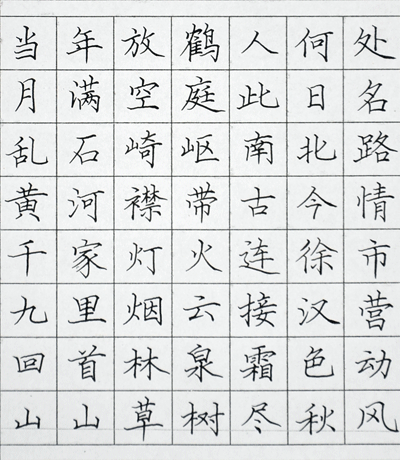 当年放鹤人何处
月满空庭此日名
乱石崎岖南北路
黄河襟带古今情
千家灯火连徐市
九里烟云接汉营
回首林泉霜色动
山山草树尽秋风